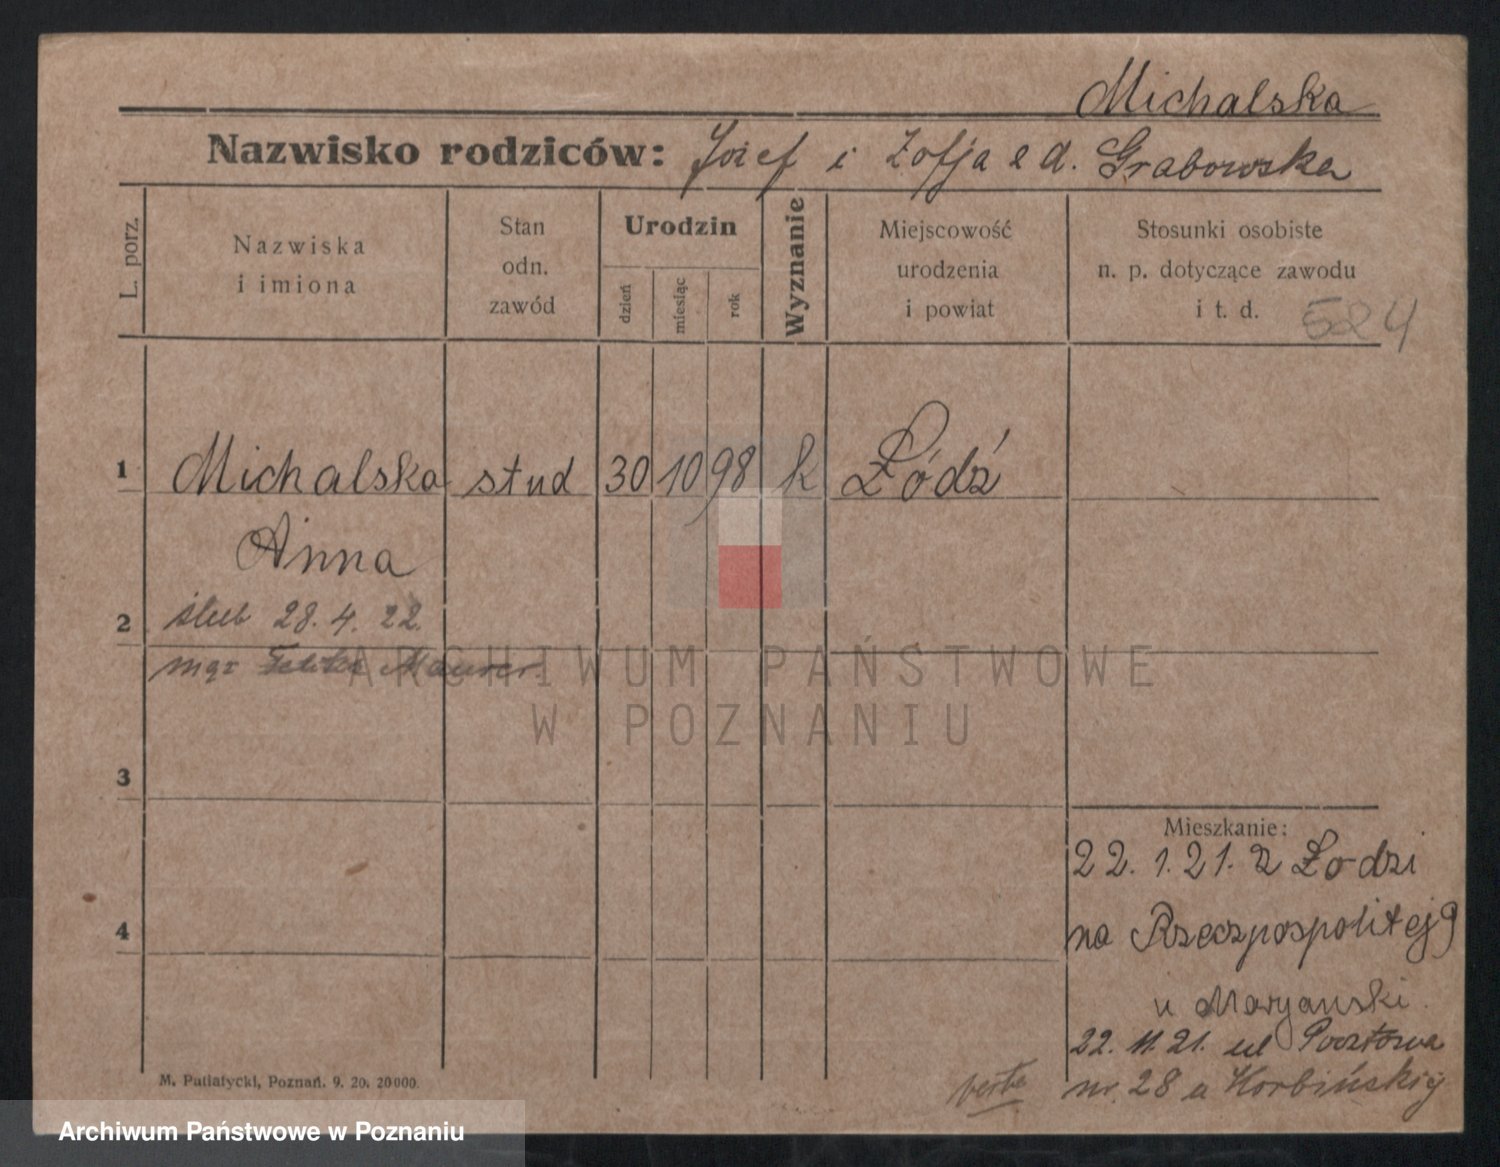 Michalska
Nazwisko rodziców: Józef i Zofja z d. Grabowska
L. porz.
Nazwiska
i imiona
Stan
odn.
zawód
Urodzin
dzień
miesiąc
rok
Wyznanie
Miejscowość
urodzenia
i powiat
Stosunki osobiste
n. p. dotyczące zawodu
i t. d.
524
1
Michalska stud 30 10 98 k Łódź
Anna
2
ślub 28.4.22.
mgr Maurer
ARCHIWUM PAŃSTWOWE
W POZNANIU
3
Mieszkanie:
22.1.21. z Łodzi
4
na Rzeczpospolitej 9
u Maryanski.
22.11.21. ul Pocztowa
nr. 28 u Korbińskij
verte
M. Putiatycki, Poznań. 9. 20. 20000.
Archiwum Państwowe w Poznaniu